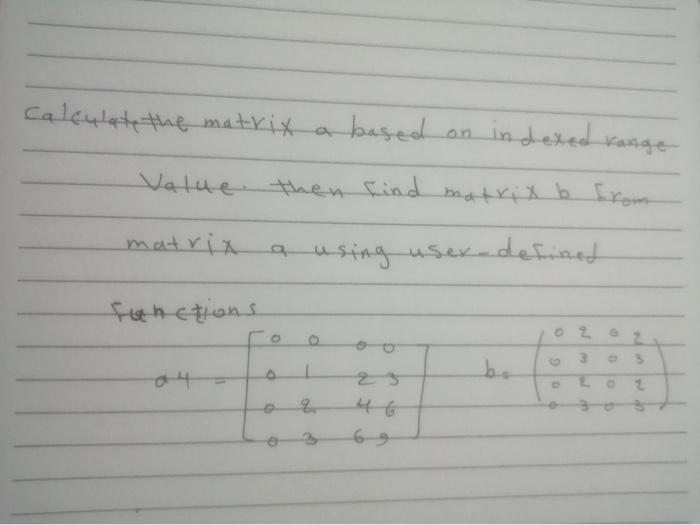 Calculate the matrix a based on indexed range
Value. then find matrix b from
matrix a using user-defined
functions
a4 = [0 0 0 0
0 1 2 3
0 2 4 6
0 3 6 9]
b = (0 2 0 2
0 3 0 3
0 2 0 2
0 3 0 3)